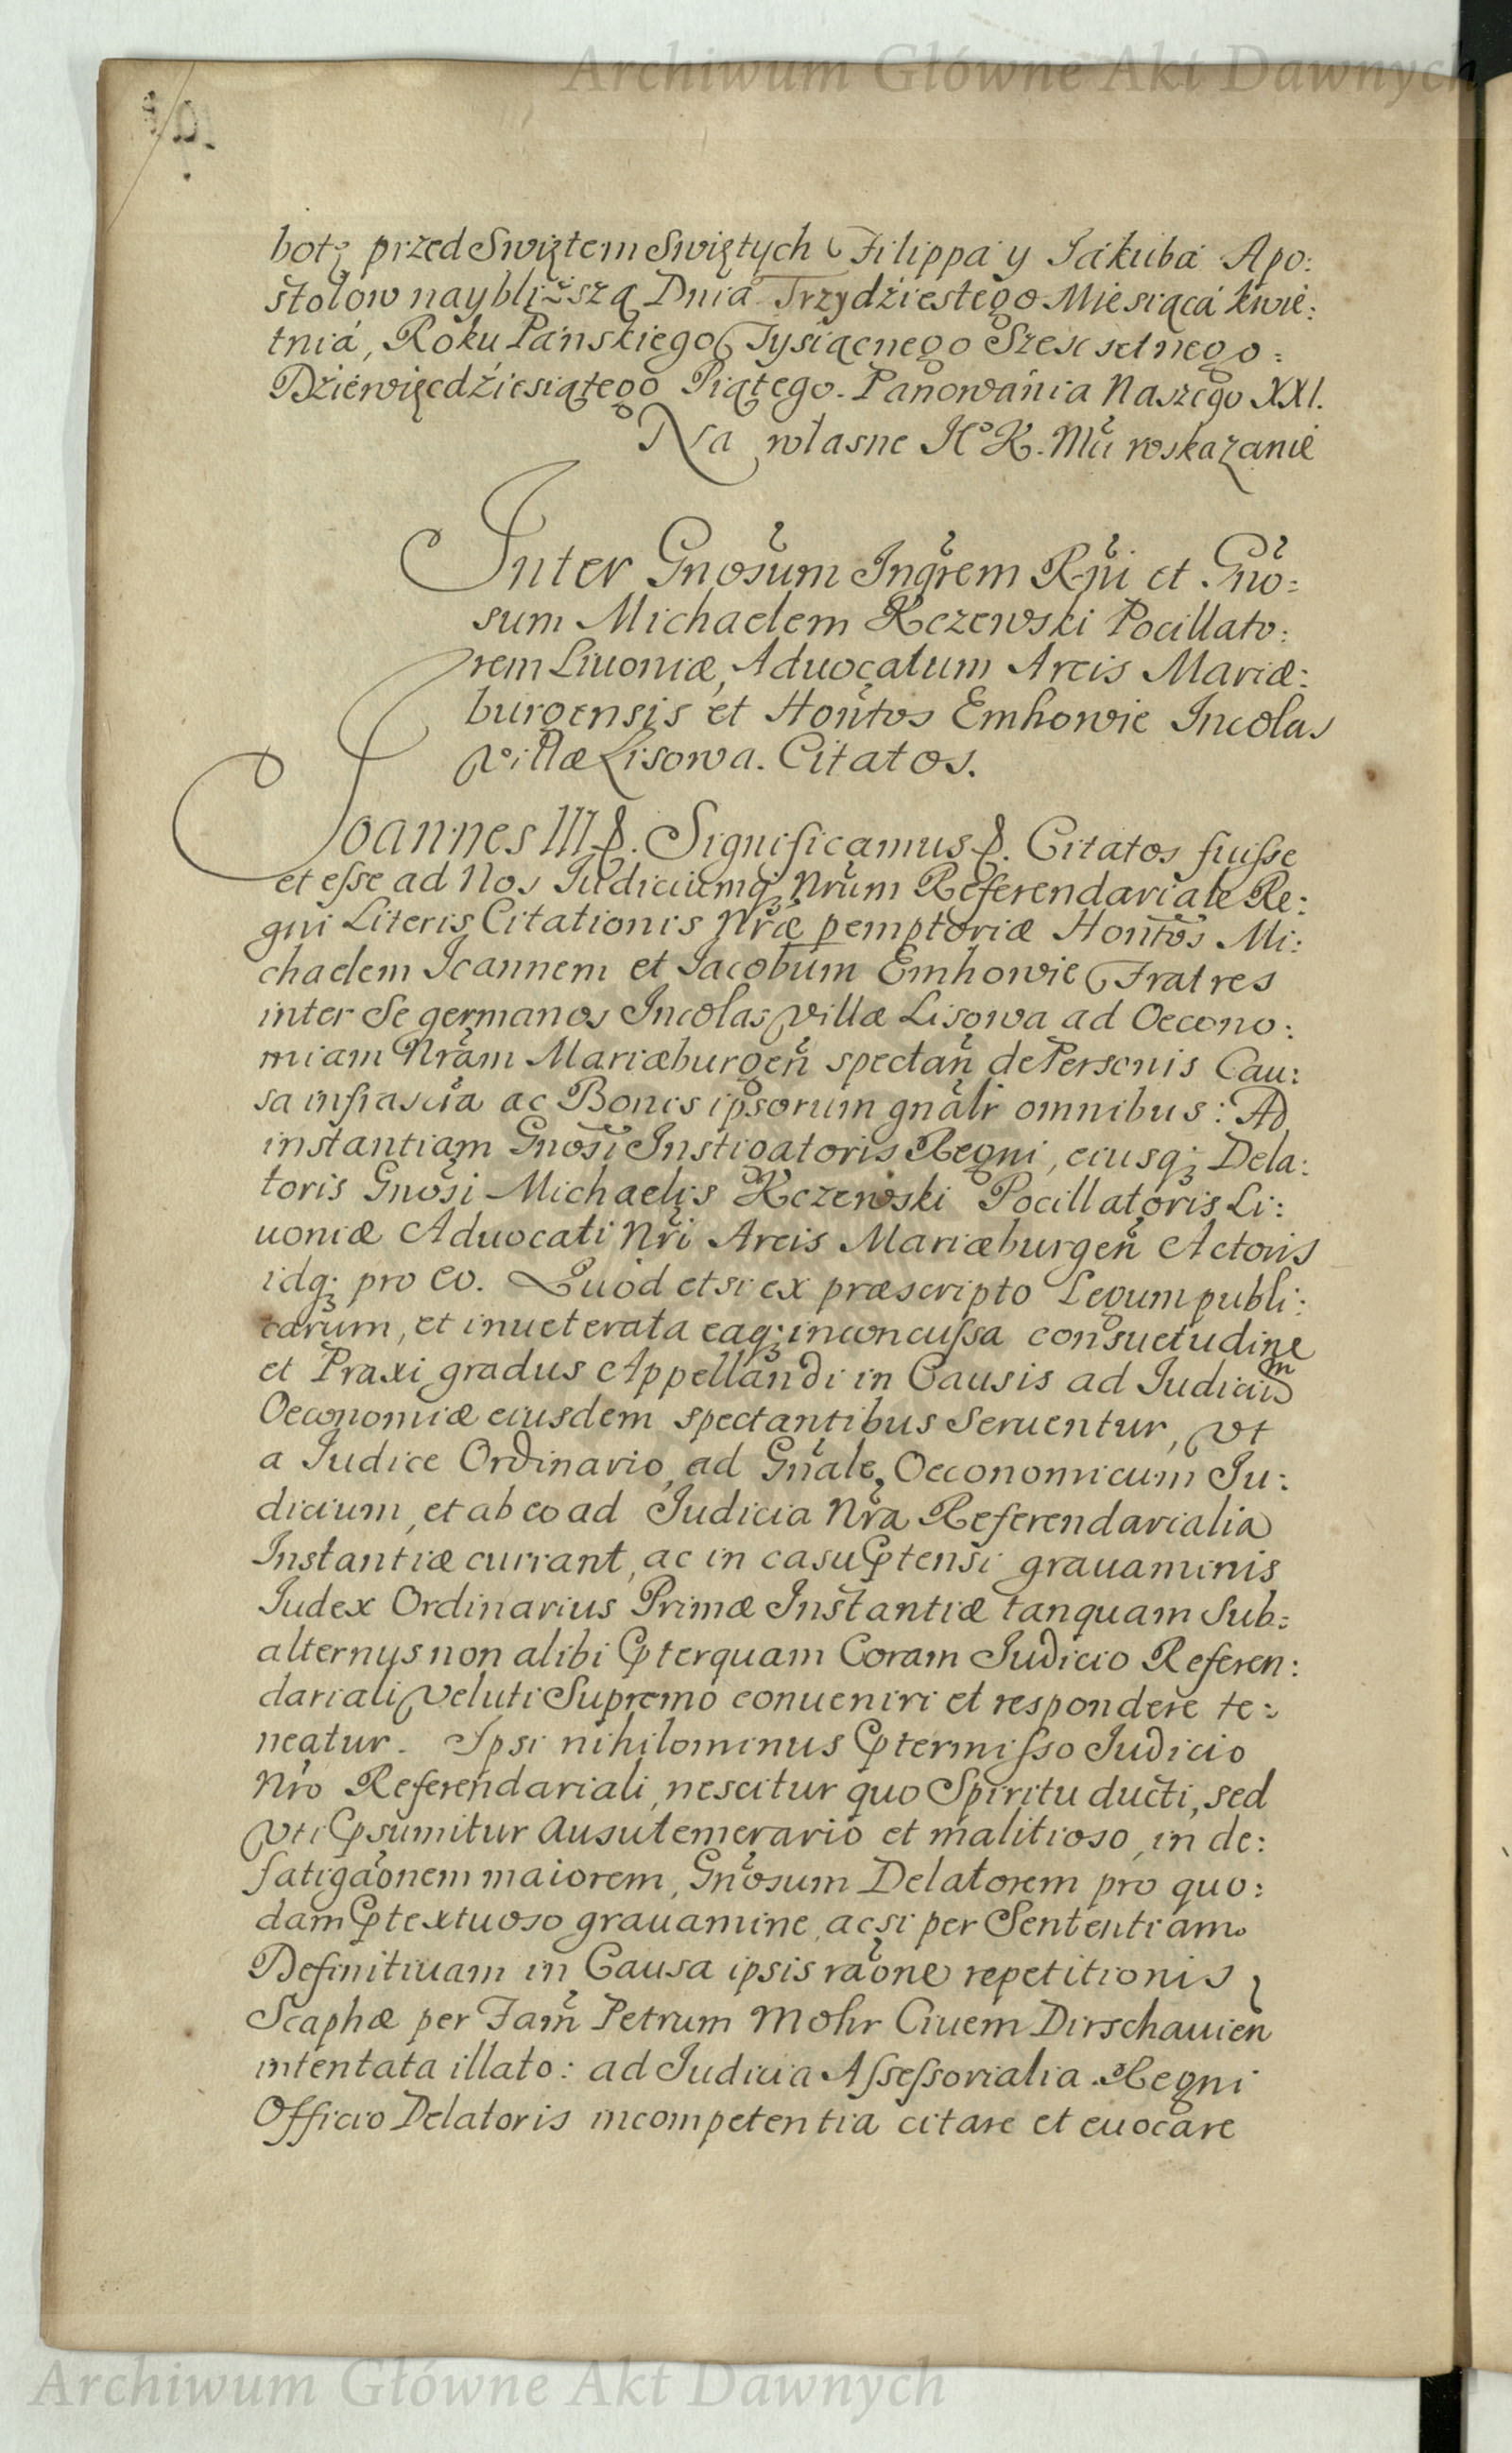 Archiwum Główne Akt Dawnych
botę przed Swiętem Swiętych Filippa y Jakuba Apo:
stołow naybliższą Dnia Trzydziestego Miesiąca kwie:
tnia, Roku Panskiego Tysiącnego Szescsetnego:
Dziewięcdziesiątego Piątego. Panowania Naszego XXI.
Na własne JKo Mci roskazanie
Inter Gnosum Ingrem Rgni et Gno:
sum Michaelem Kczewski Pocillato:
rem Liuoniæ, Aduocatum Arcis Mariæ:
burgensis et Hontos Emhowie Incolas
villæ Lisowa. Citatos.
Joannes III. Significamus. Citatos fuisse
et esse ad Nos Judiciumq; Nrum Referendariale Re:
gni Literis Citationis Nræ pemptoriæ Hontos Mi:
chaelem Joannem et Jacobum Emhowie Fratres
inter Se germanos Incolas villæ Lisowa ad Oecono:
miam Nram Mariæburgen spectan de Personis Cau:
sa infrascta ac Bonis ipsorum gnalr omnibus: Ad
instantiam Gnosi Instigatoris Regni, eiusq; Dela:
toris Gnosi Michaelis Kczewski Pocillatoris Li:
uoniæ Aduocati Nri Arcis Mariæburgen Actoris
idq; pro eo. Quod etsi ex præscripto Legum publi:
carum, et inueterata eaq; inconcussa consuetudine
et Praxi gradus Appellandi in Causis ad Judicium
Oeconomiæ eiusdem spectantibus Seruentur, vt
a Judice Ordinario, ad Gnale Oeconomicum Ju:
dicium, et ab eo ad Judicia Nra Referendarialia
Instantiæ currant, ac in casu Ptensi grauaminis
Judex Ordinarius Primæ Instantiæ tanquam Sub:
alternus non alibi Pterquam Coram Judicio Referen:
dariali veluti Supremo conueniri et respondere te:
neatur. Ipsi nihilominus Ptermisso Judicio
Nro Referendariali, nescitur quo Spiritu ducti, sed
vti Psumitur ausu temerario et malitioso, in de:
fatigaonem maiorem, Gnosum Delatorem pro quo:
dam Ptextuoso grauamine, acsi per Sententiam
Definitiuam in Causa ipsis raone repetitionis
Scaphæ per Fam Petrum Mohr Ciuem Dirschauien
intentata illato: ad Judicia Assessorialia Regni
Officio Delatoris incompetentia citare et euocare
Archiwum Główne Akt Dawnych